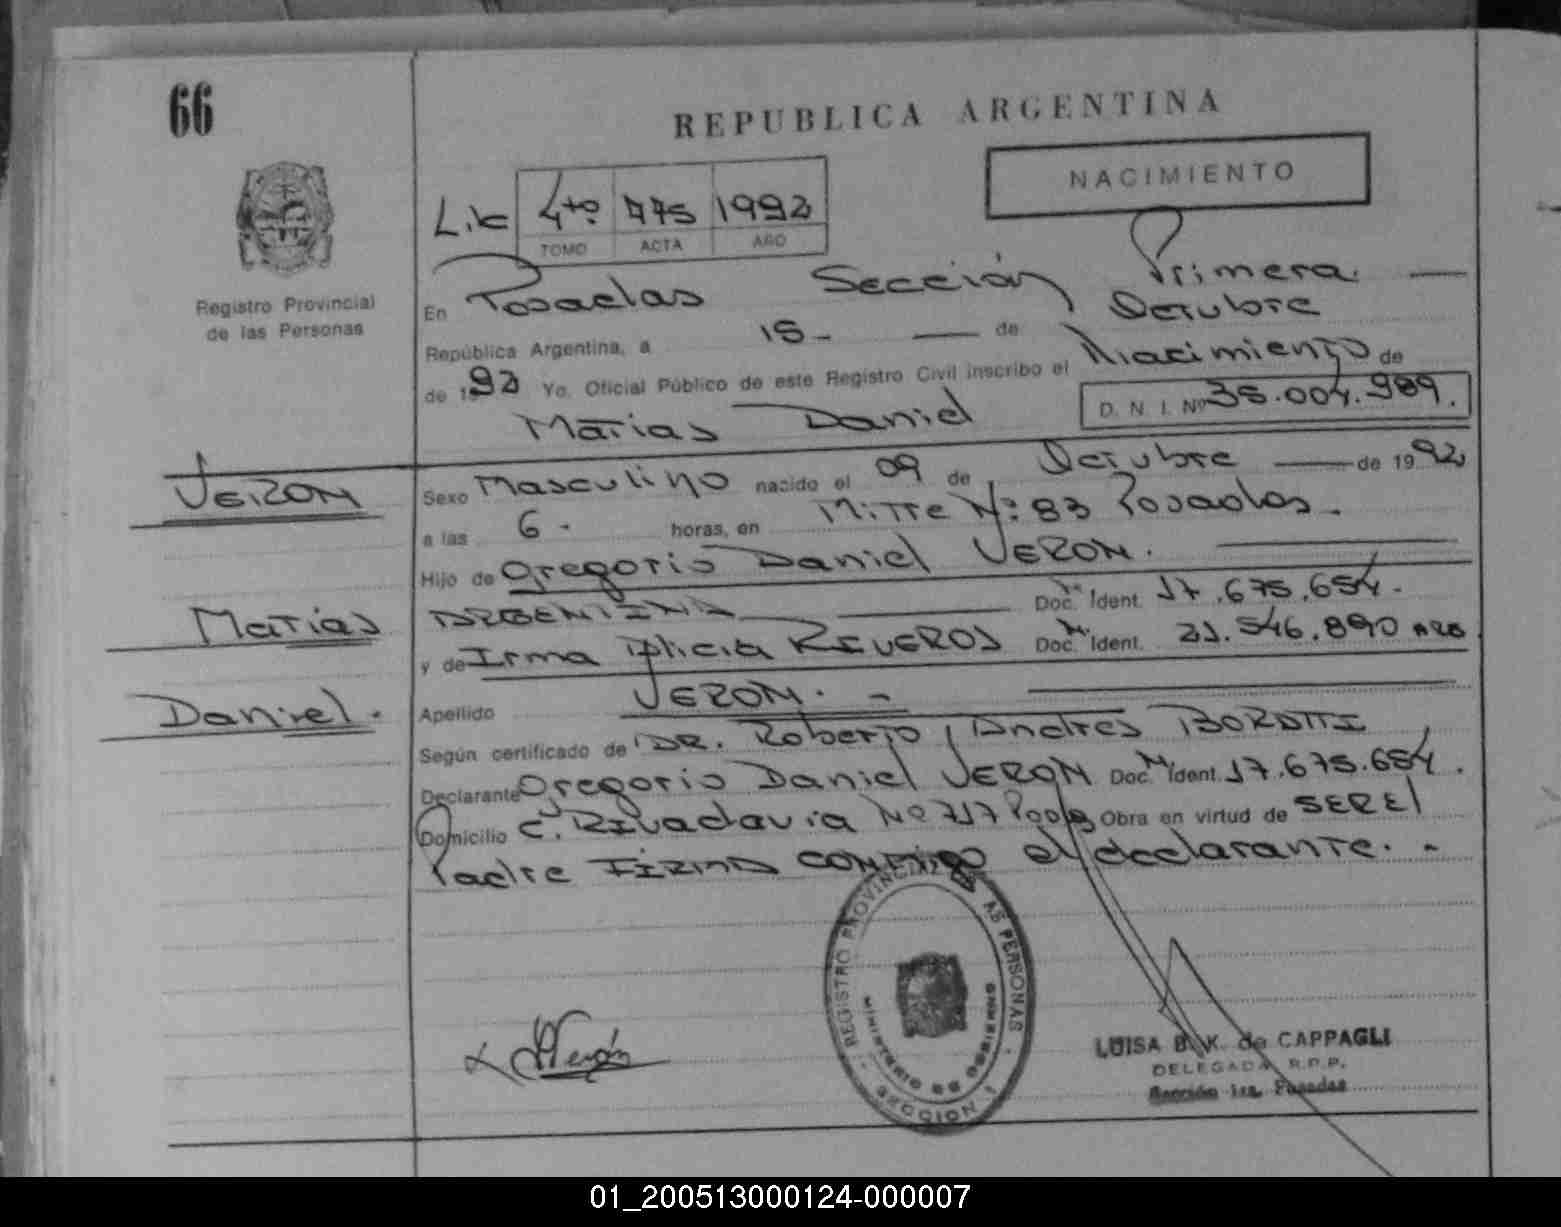 66
REPUBLICA ARGENTINA
NACIMIENTO
4to. 775 1992
TOMO ACTA AÑO
Registro Provincial
de las Personas
En Posadas Sección Primera.
República Argentina, a 15- de Octubre
de 1992 Yo. Oficial Público de este Registro Civil inscribo el Nacimiento de
D. N. I. Nº 35.004.989.
Matias Daniel
VERON
Sexo Masculino nacido el 09 de Octubre de 1992
a las 6. horas, en Mitre Nº: 83 Posadas.
Hijo de Gregorio Daniel VERON.
Matías
ARGENTINA Doc. Ident. 17.675.654.
y de Irma Alicia RIVEROS Doc. Ident. 21.546.890 ARG
Daniel.
Apellido VERON. -
Según certificado de DR. Roberto Andres BORATTI
Declarante Gregorio Daniel VERON Doc. Ident. 17.675.654.
Domicilio C. Rivadavia Nº 717 Obra en virtud de SER El
Padre FIRMA conmigo el declarante. -
REGISTRO PROVINCIAL DE LAS PERSONAS
MINISTERIO DE GOBIERNO
SECCION 1
Verón
LUISA B. K. de CAPPAGLI
DELEGADA R.P.P.
Sección 1ra. Posadas
01_200513000124-000007